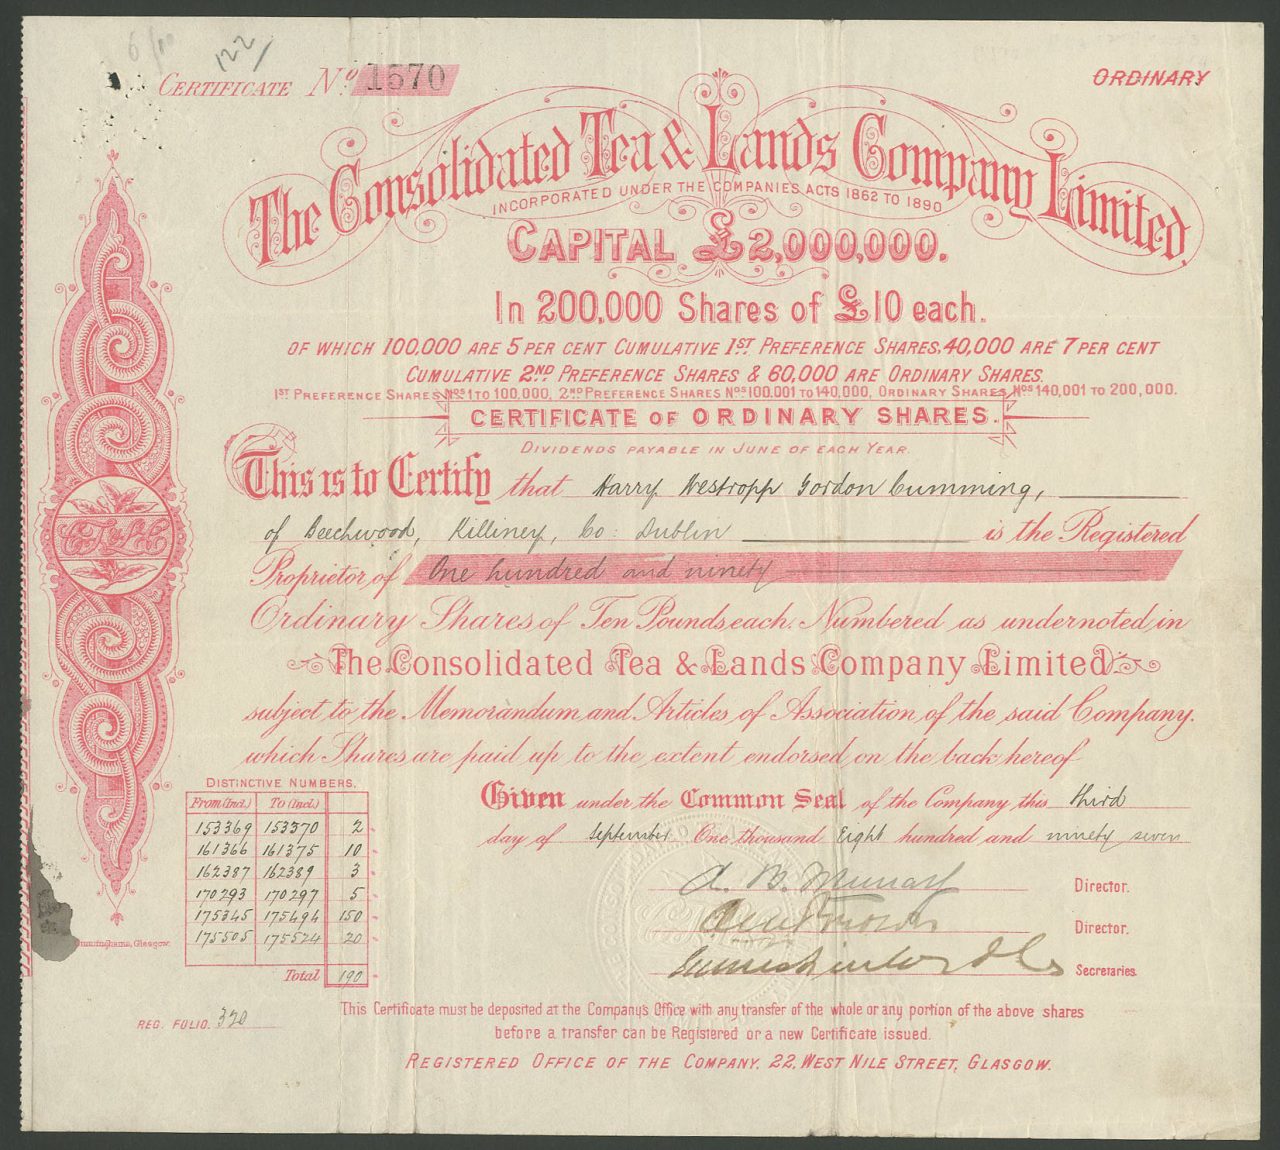 122/
CERTIFICATE No. 1570
ORDINARY
The Consolidated Tea & Lands Company Limited.
INCORPORATED UNDER THE COMPANIES ACTS 1862 TO 1890
CAPITAL £2,000,000.
In 200,000 Shares of £10 each.
OF WHICH 100,000 ARE 5 PER CENT CUMULATIVE 1ST PREFERENCE SHARES, 40,000 ARE 7 PER CENT
CUMULATIVE 2ND PREFERENCE SHARES & 60,000 ARE ORDINARY SHARES.
1ST PREFERENCE SHARES Nos 1 TO 100,000, 2ND PREFERENCE SHARES Nos 100,001 TO 140,000, ORDINARY SHARES Nos 140,001 TO 200,000.
CERTIFICATE OF ORDINARY SHARES.
DIVIDENDS PAYABLE IN JUNE OF EACH YEAR.
This is to Certify that Harry Westropp Gordon Cumming,
of Beechwood, Killiney, Co: Dublin is the Registered
Proprietor of One hundred and ninety
Ordinary Shares of Ten Pounds each. Numbered as undernoted, in
The Consolidated Tea & Lands Company Limited
subject to the Memorandum and Articles of Association of the said Company.
which Shares are paid up to the extent endorsed on the back hereof
DISTINCTIVE NUMBERS.
From (Incl.) To (Incl.)
153369 153370 2
161366 161375 10
162387 162389 3
170293 170297 5
175345 175494 150
175505 175524 20
Total 190
Given under the Common Seal of the Company this third
day of September One thousand Eight hundred and ninety seven
Director.
Director.
Secretaries.
Glasgow.
REG. FOLIO. 320
This Certificate must be deposited at the Company's Office with any transfer of the whole or any portion of the above shares
before a transfer can be Registered or a new Certificate issued.
REGISTERED OFFICE OF THE COMPANY, 22, WEST NILE STREET, GLASGOW.